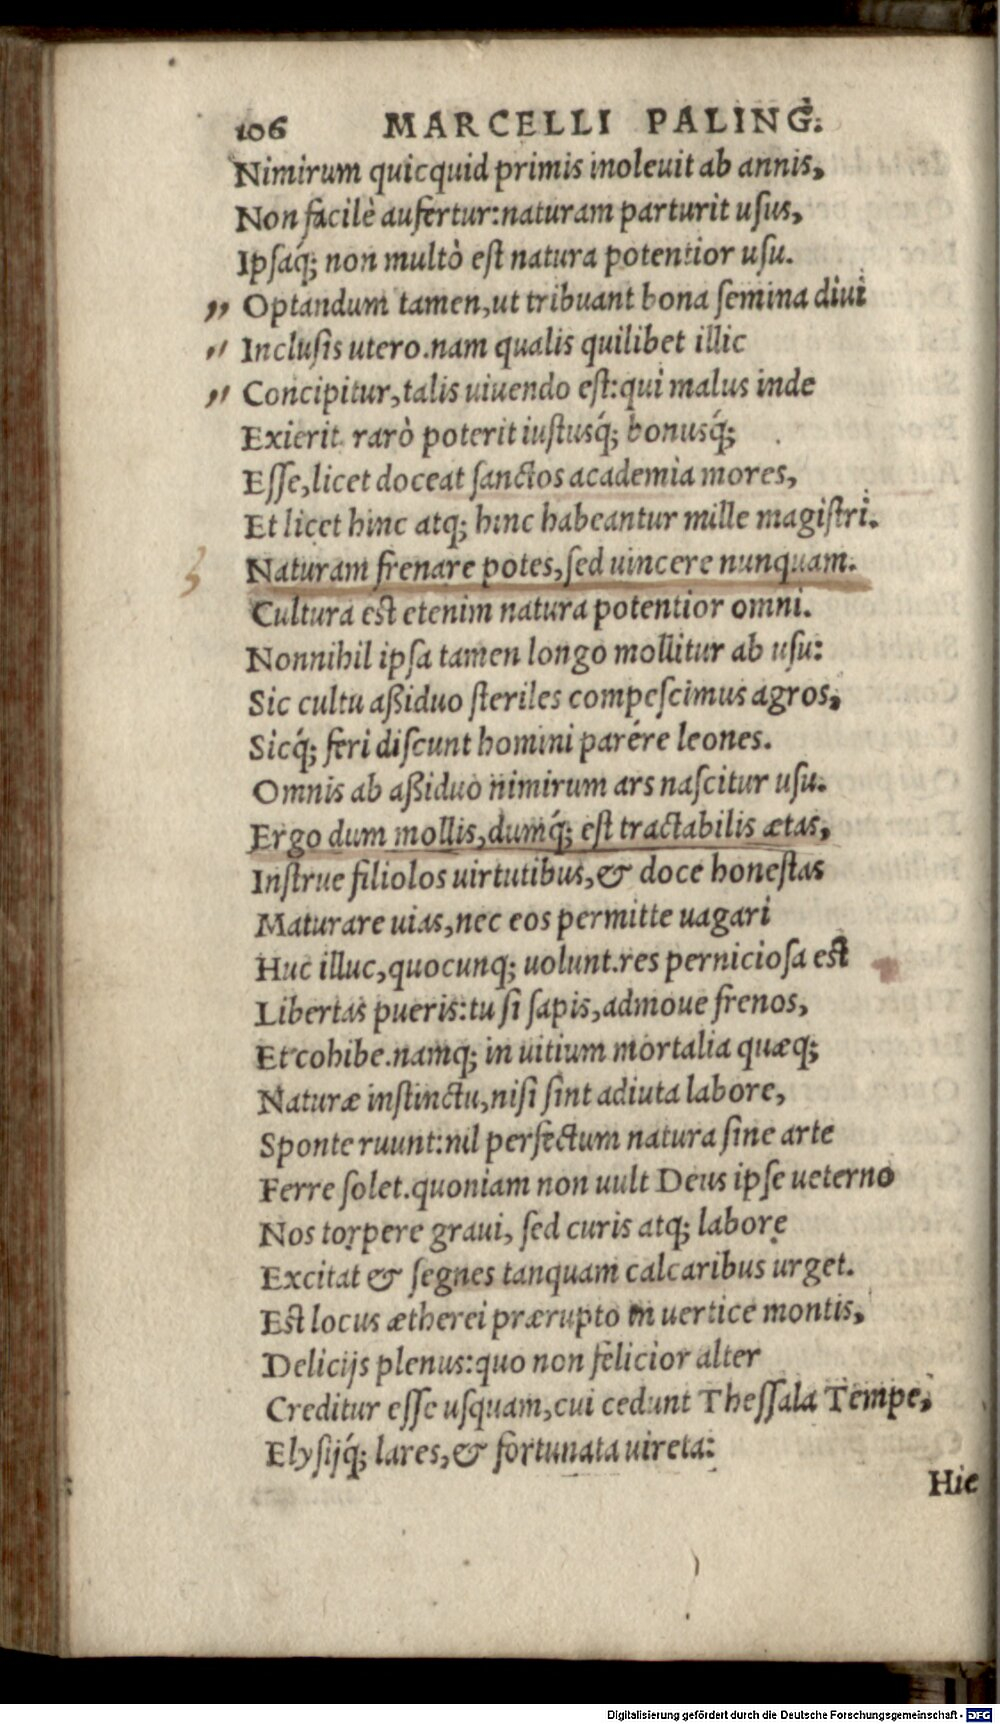 106 MARCELLI PALING.
Nimirum quicquid primis inoleuit ab annis,
Non facilè aufertur:naturam parturit uſus,
Ipſaq́; non multò eſt natura potentior uſu.
,, Optandum tamen,ut tribuant bona ſemina diui
,, Incluſis utero.nam qualis quilibet illic
,, Concipitur,talis uiuendo eſt:qui malus inde
Exierit rarò poterit iuſtusq́; bonusq́;
Eſſe,licet doceat ſanctos academia mores,
Et licet hinc atq; hinc habeantur mille magiſtri.
Naturam frenare potes,ſed uincere nunquam.
Cultura eſt etenim natura potentior omni.
Nonnihil ipſa tamen longo mollitur ab uſu:
Sic cultu aßiduo ſteriles compeſcimus agros,
Sicq́; feri diſcunt homini parére leones.
Omnis ab aßiduo nimirum ars naſcitur uſu.
Ergo dum mollis,dumq́; eſt tractabilis ætas,
Inſtrue filiolos uirtutibus,& doce honeſtas
Maturare uias,nec eos permitte uagari
Huc illuc,quocunq; uolunt.res pernicioſa eſt
Libertas pueris:tu ſi ſapis,admoue frenos,
Et cohibe.namq; in uitium mortalia quæq;
Naturæ inſtinctu,niſi ſint adiuta labore,
Sponte ruunt:nil perfectum natura ſine arte
Ferre ſolet.quoniam non uult Deus ipſe ueterno
Nos torpere graui, ſed curis atq; labore
Excitat & ſegnes tanquam calcaribus urget.
Eſt locus ætherei prærupto in uertice montis,
Delicijs plenus:quo non felicior alter
Creditur eſſe uſquam,cui cedunt Theſſala Tempe,
Elyſijq́; lares,& fortunata uireta:
Hic
Digitalisierung gefördert durch die Deutsche Forschungsgemeinschaft - DFG